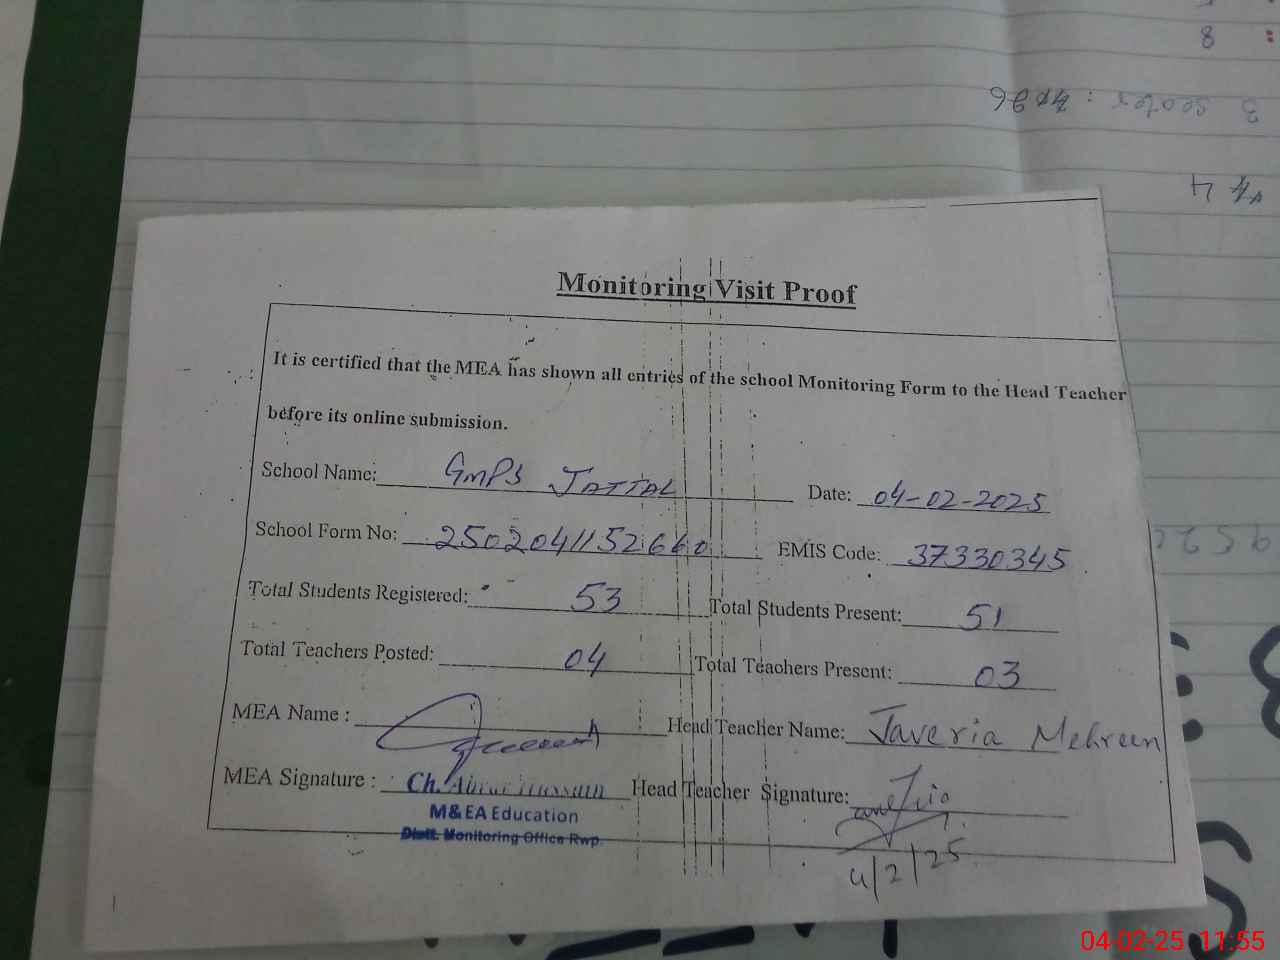 8
3 seater : 4x96
x4 4
Monitoring Visit Proof
It is certified that the MEA has shown all entries of the school Monitoring Form to the Head Teacher
before its online submission.
School Name: GMPS JATTAL Date: 04-02-2025
School Form No: 2502041152660 EMIS Code: 37330345
Total Students Registered: 53 Total Students Present: 51
Total Teachers Posted: 04 Total Teachers Present: 03
MEA Name : Head Teacher Name: Javeria Mehreen
MEA Signature : Ch. Head Teacher Signature:
M&EA Education
Distt. Monitoring Office Rwp.
4/2/25
04-02-25 11:55